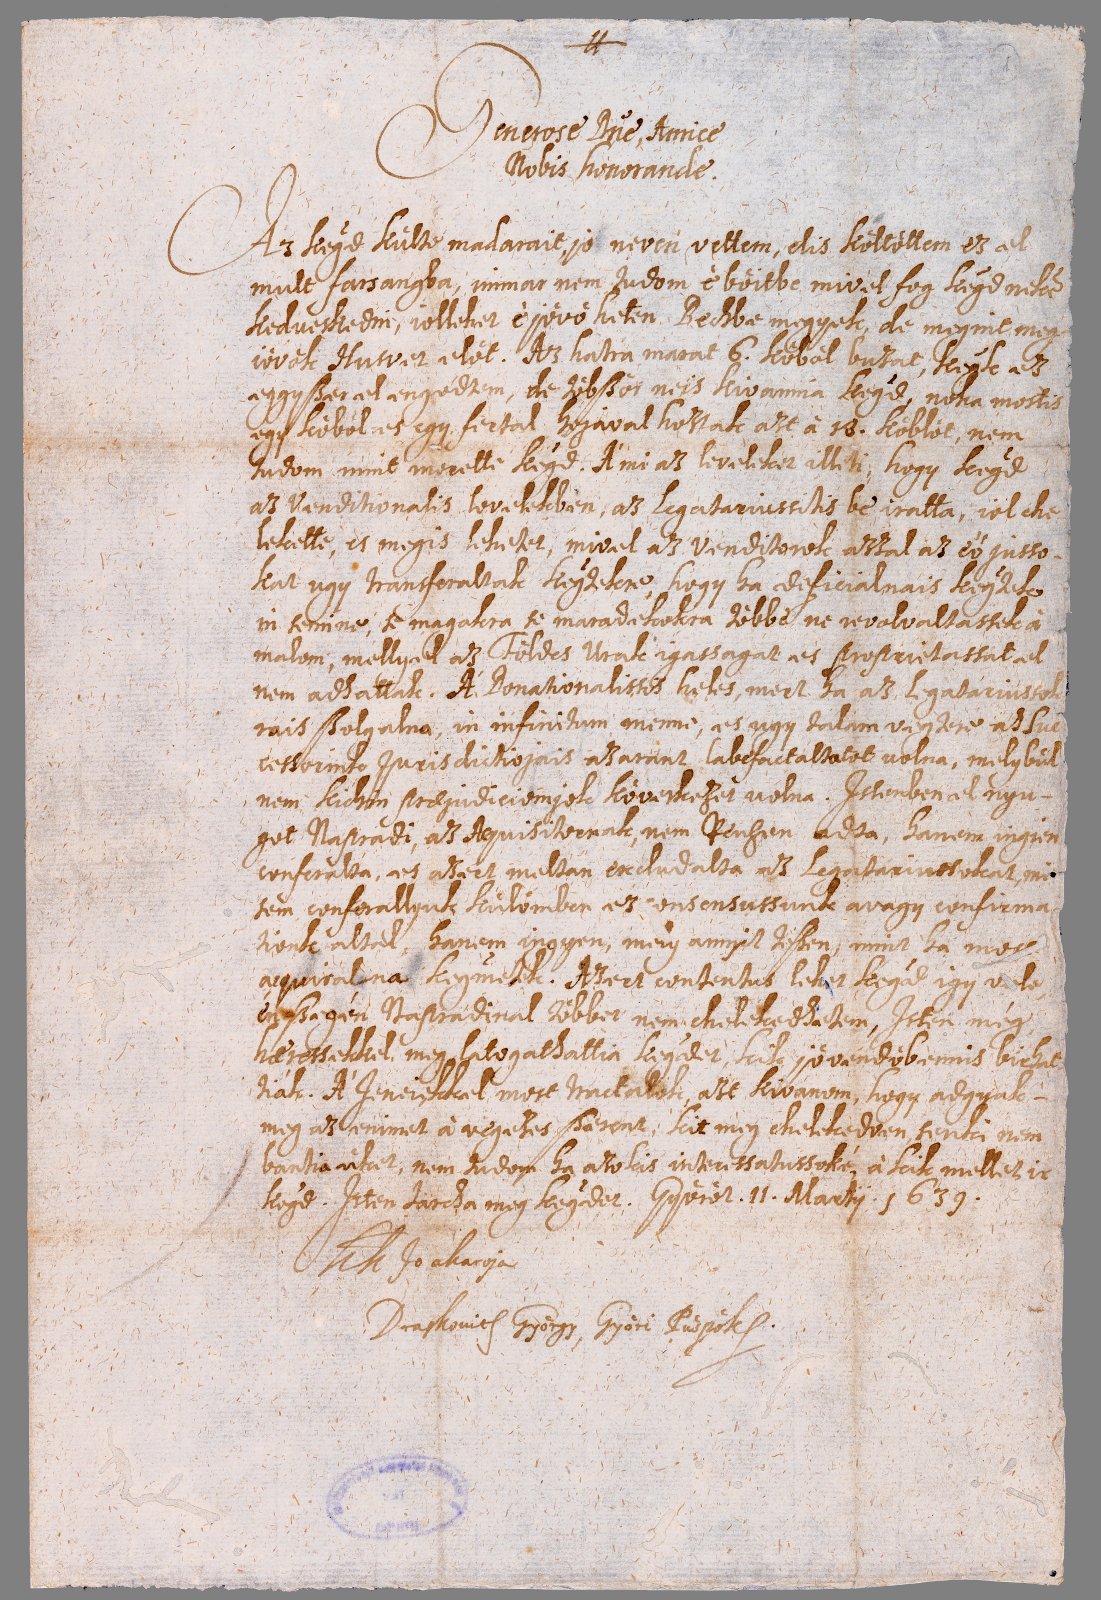 Generose Dne, Amice
Nobis honorande.
Az kegd külte madarait, jo neven vettem, elis költöttem ez el
mult farsangba, immar nem tudom e böitbe mivel fog kegd neke
kedveskedni, jolleket e jövö heten Bechbe megyek, de megint meg
jövök Husvet elöt. Az hatra marat 6. köböl buzat, kegk az
eggyszer el engedtem, de többször neis kivannia kegd, noha mostis
egy köböl es egy fertal hojaval hoztak azt à 18. köblöt, nem
tudom mint merette kegd. A mi az leveleket illeti, hogy kegd
az Venditionalis levelekben, az Legatariussitis be iratta, jol che
lekette, es megis lehetet, mivel az Venditorok azzal az ö jusso-
kat ugy transferaltak kegtekre, hogy ha deficialnais kegtek
in semine, se magokra se maradekokra többe ne revolvaltassek à
malom, mellyel az Földes Urak igassagat es proprietassat el
nem adhattak. A Donationalissis heles, mert ha az Legatariussok
rais szolgalna, in infinitum menne, es ugy talam vegtere az Suc
cessorink Jurisdictiojais azarant labefactaltatot volna, melybül
nem kichin praejudiciomjok következet volna. Istenben el nyu-
got Napradi, az Aquisitornak, nem Penzen adta, hanem ingien
conferalta, es azert meltan excludalta az Legatariussokat, mi
sem conferallyuk külömben ez consensussunk avagy confirma
tionk altal, hanem ingyen, mely annyit teszen, mint ha most
acquiralna kegmetek. Azert contentus lehet kegd igy vele,
en szegen Napradinal többet nem chelekedhetem, Isten meg
haeressekkel meg latogathattia kegdet, kik jövendöbennis birhat
tiak. A Jeneiekkel most tractalok, azt kivanom, hogy adgyak-
meg az enimet à vegezes szerent, kit meg chelekedven, senki nem
bantia üket, nem tudom ha azokis interessatussoké, à kik mellet ir
kegd. Isten tarcha meg kegdet. Györöt. 11. Martij. 1639.
Kk Jo akaroja
Draskovits György, Györi Püspök